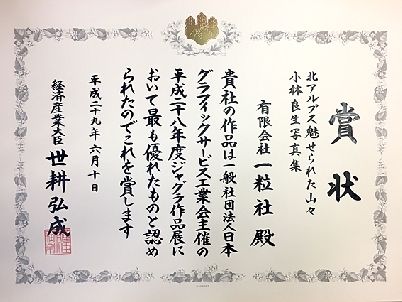 賞状
北アルプス魅せられた山々
小林良生写真集
有限会社 一粒社 殿
貴社の作品は一般社団法人日本
グラフィックサービス工業会主催の
平成二十八年度ジャグラ作品展に
おいて最も優れたものと認め
られたのでこれを賞します
平成二十九年六月十日
経済産業大臣 世耕弘成